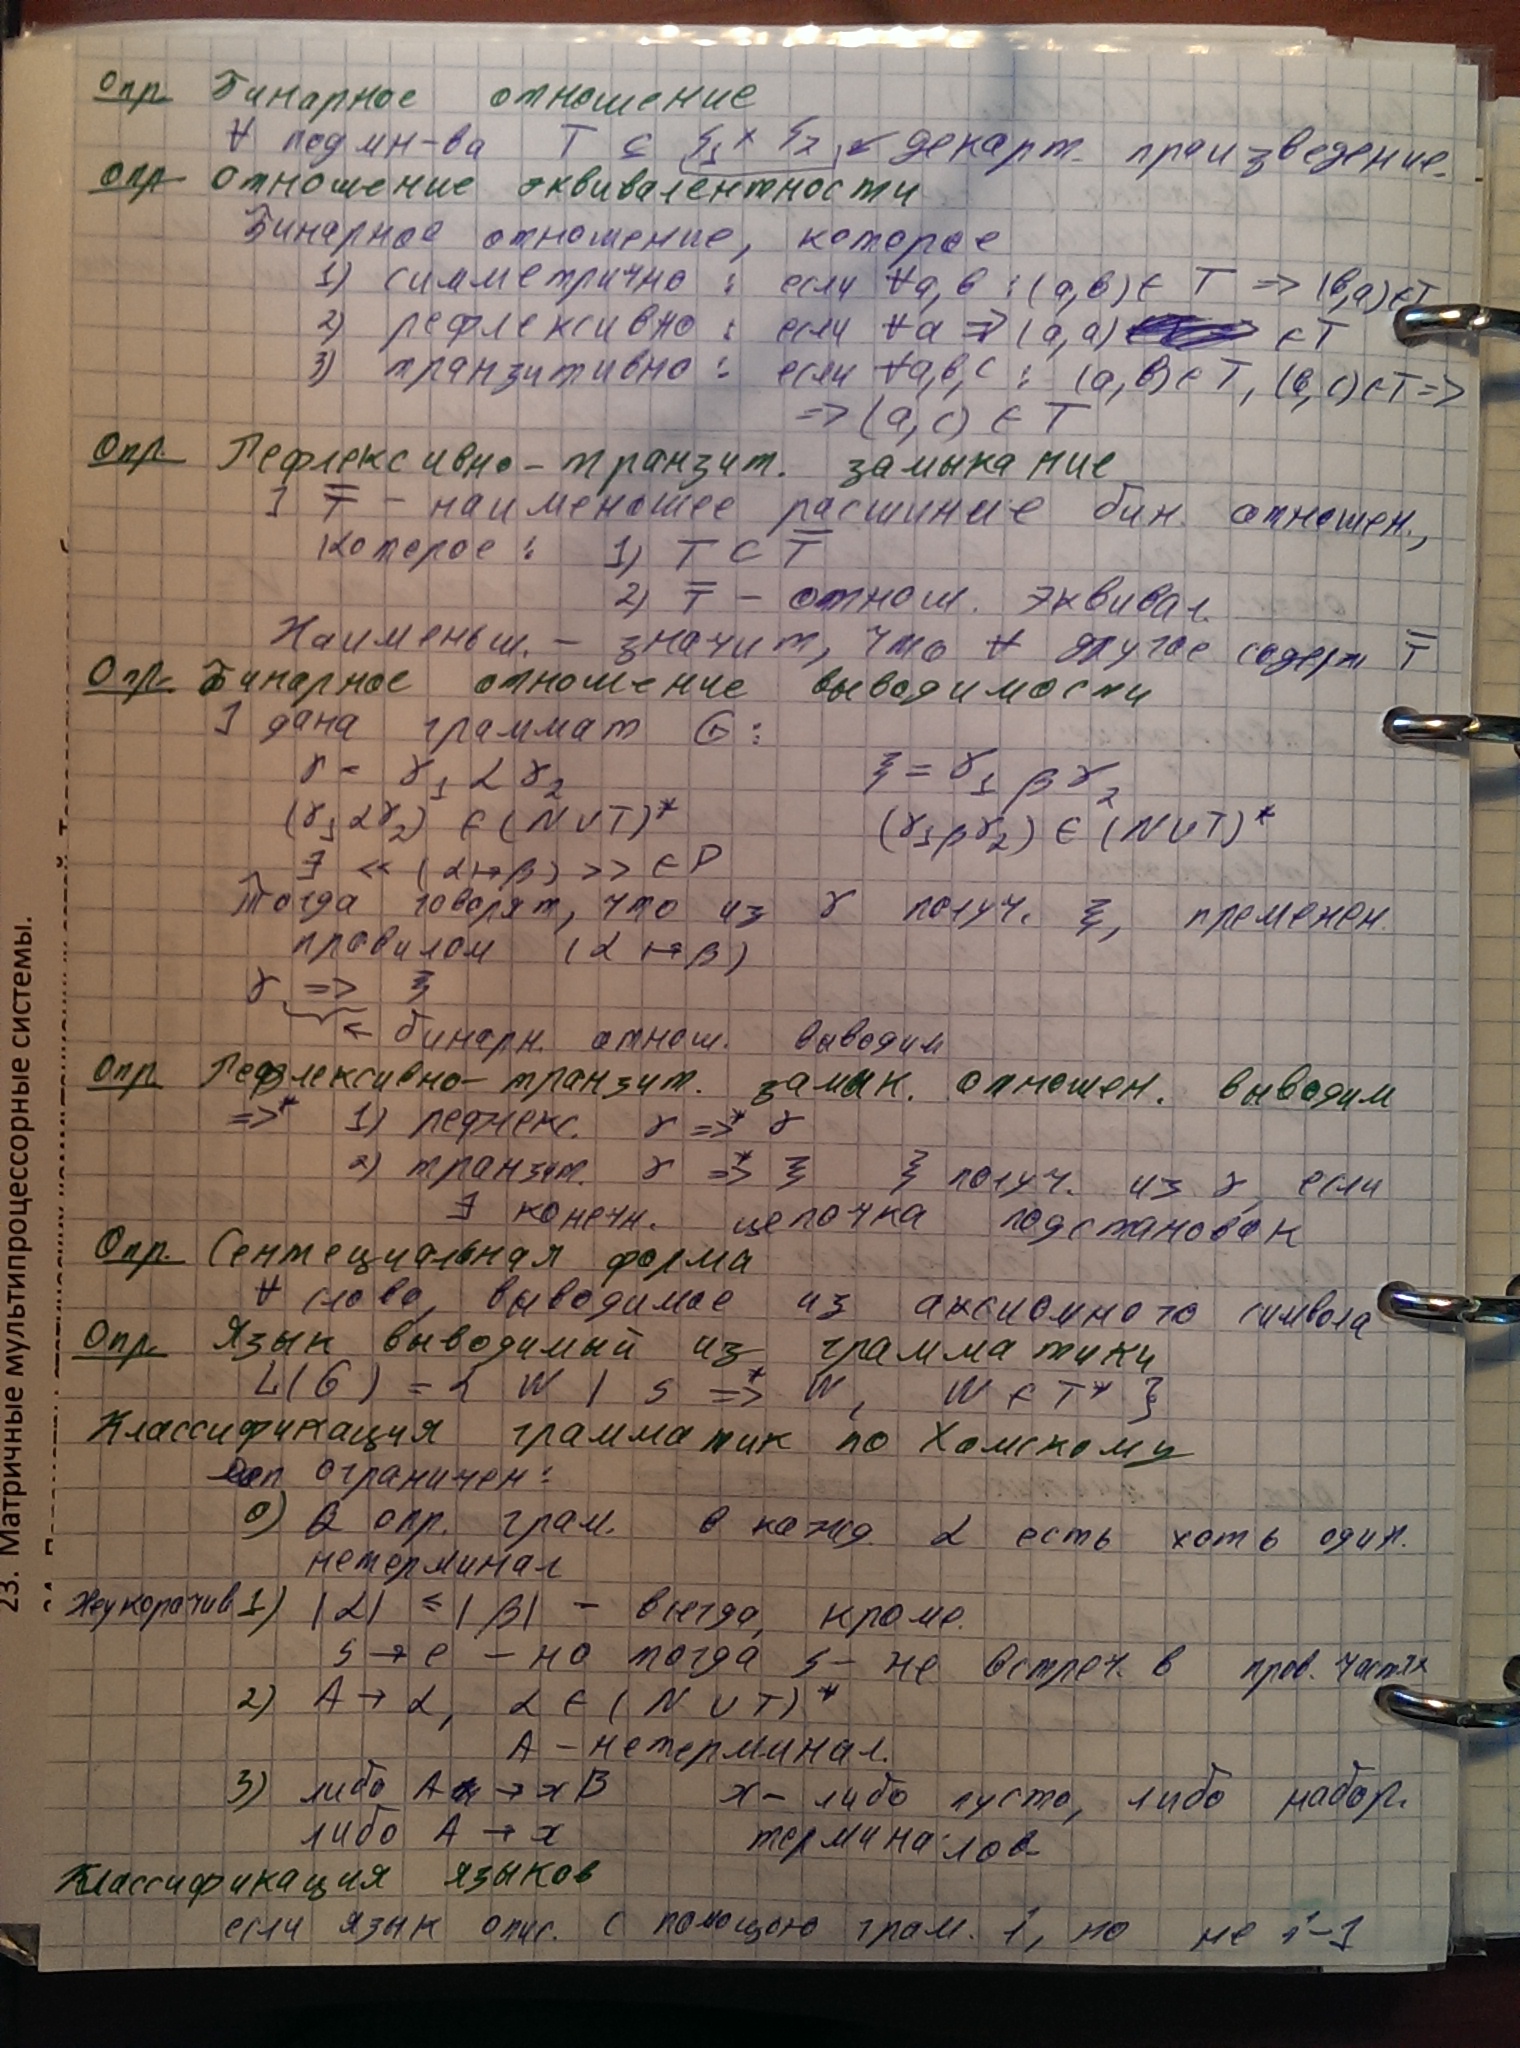 Опр. Бинарное отношение
∀ подмн-ва T ⊆ S₁ × S₂ ↙ декарт. произведение.
Опр Отношение эквивалентности
Бинарное отношение, которое
1) симметрично : если ∀a,в : (a,в) ∈ T => (в,a) ∈ T
2) рефлексивно : если ∀a => (a,a) ∈ T
3) транзитивно : если ∀a,в,c : (a,в) ∈ T, (в,c) ∈ T =>
=> (a,c) ∈ T
Опр. Рефлексивно-транзит. замыкание
] T̿ - наименошее расшиние бин. отношен.,
которое : 1) T ⊂ T̿
2) T̿ - отнош. эквивал.
Наименьш. - значит, что ∀ другое содерж T̿
Опр. Бинарное отношение выводимости
] дана граммат G :
γ = γ₁ α γ₂ ξ = γ₁ β γ₂
(γ₁ α γ₂) ∈ (N ∪ T)* (γ₁ β γ₂) ∈ (N ∪ T)*
∃ << (α ↦ β) >> ∈ P
Тогда говорят, что из γ получ. ξ, пременен.
правилом (α ↦ β)
γ => ξ
← бинарн. отнош. выводим
Опр Рефлексивно-транзит. замык. отношен. выводим
=>* 1) рефлекс. γ =>* γ
2) транзит. γ =>* ξ ξ получ. из γ, если
∃ конечн. цепочка подстановок
Опр. Сентециальная форма
∀ слово, выводимое из аксиомного символа
Опр. Язык выводимый из грамматики
L(G) = { W | S =>* W, W ∈ T* }
Классификация грамматик по Хомскому
ограничен :
0) В опр. грам. в кажд α есть хоть один.
нетерминал
Неукорачив 1) |α| ≤ |β| - всегда, кроме.
S → e - но тогда S - не встреч. в прав. частях
2) A → α, α ∈ (N ∪ T)*
A - нетерминал.
3) либо A → xB x - либо пусто, либо набор.
либо A → x терминалов
Классификация языков
если язык опис. с помощью грам. i, но не i-1
23. Матричные мультипроцессорные системы.